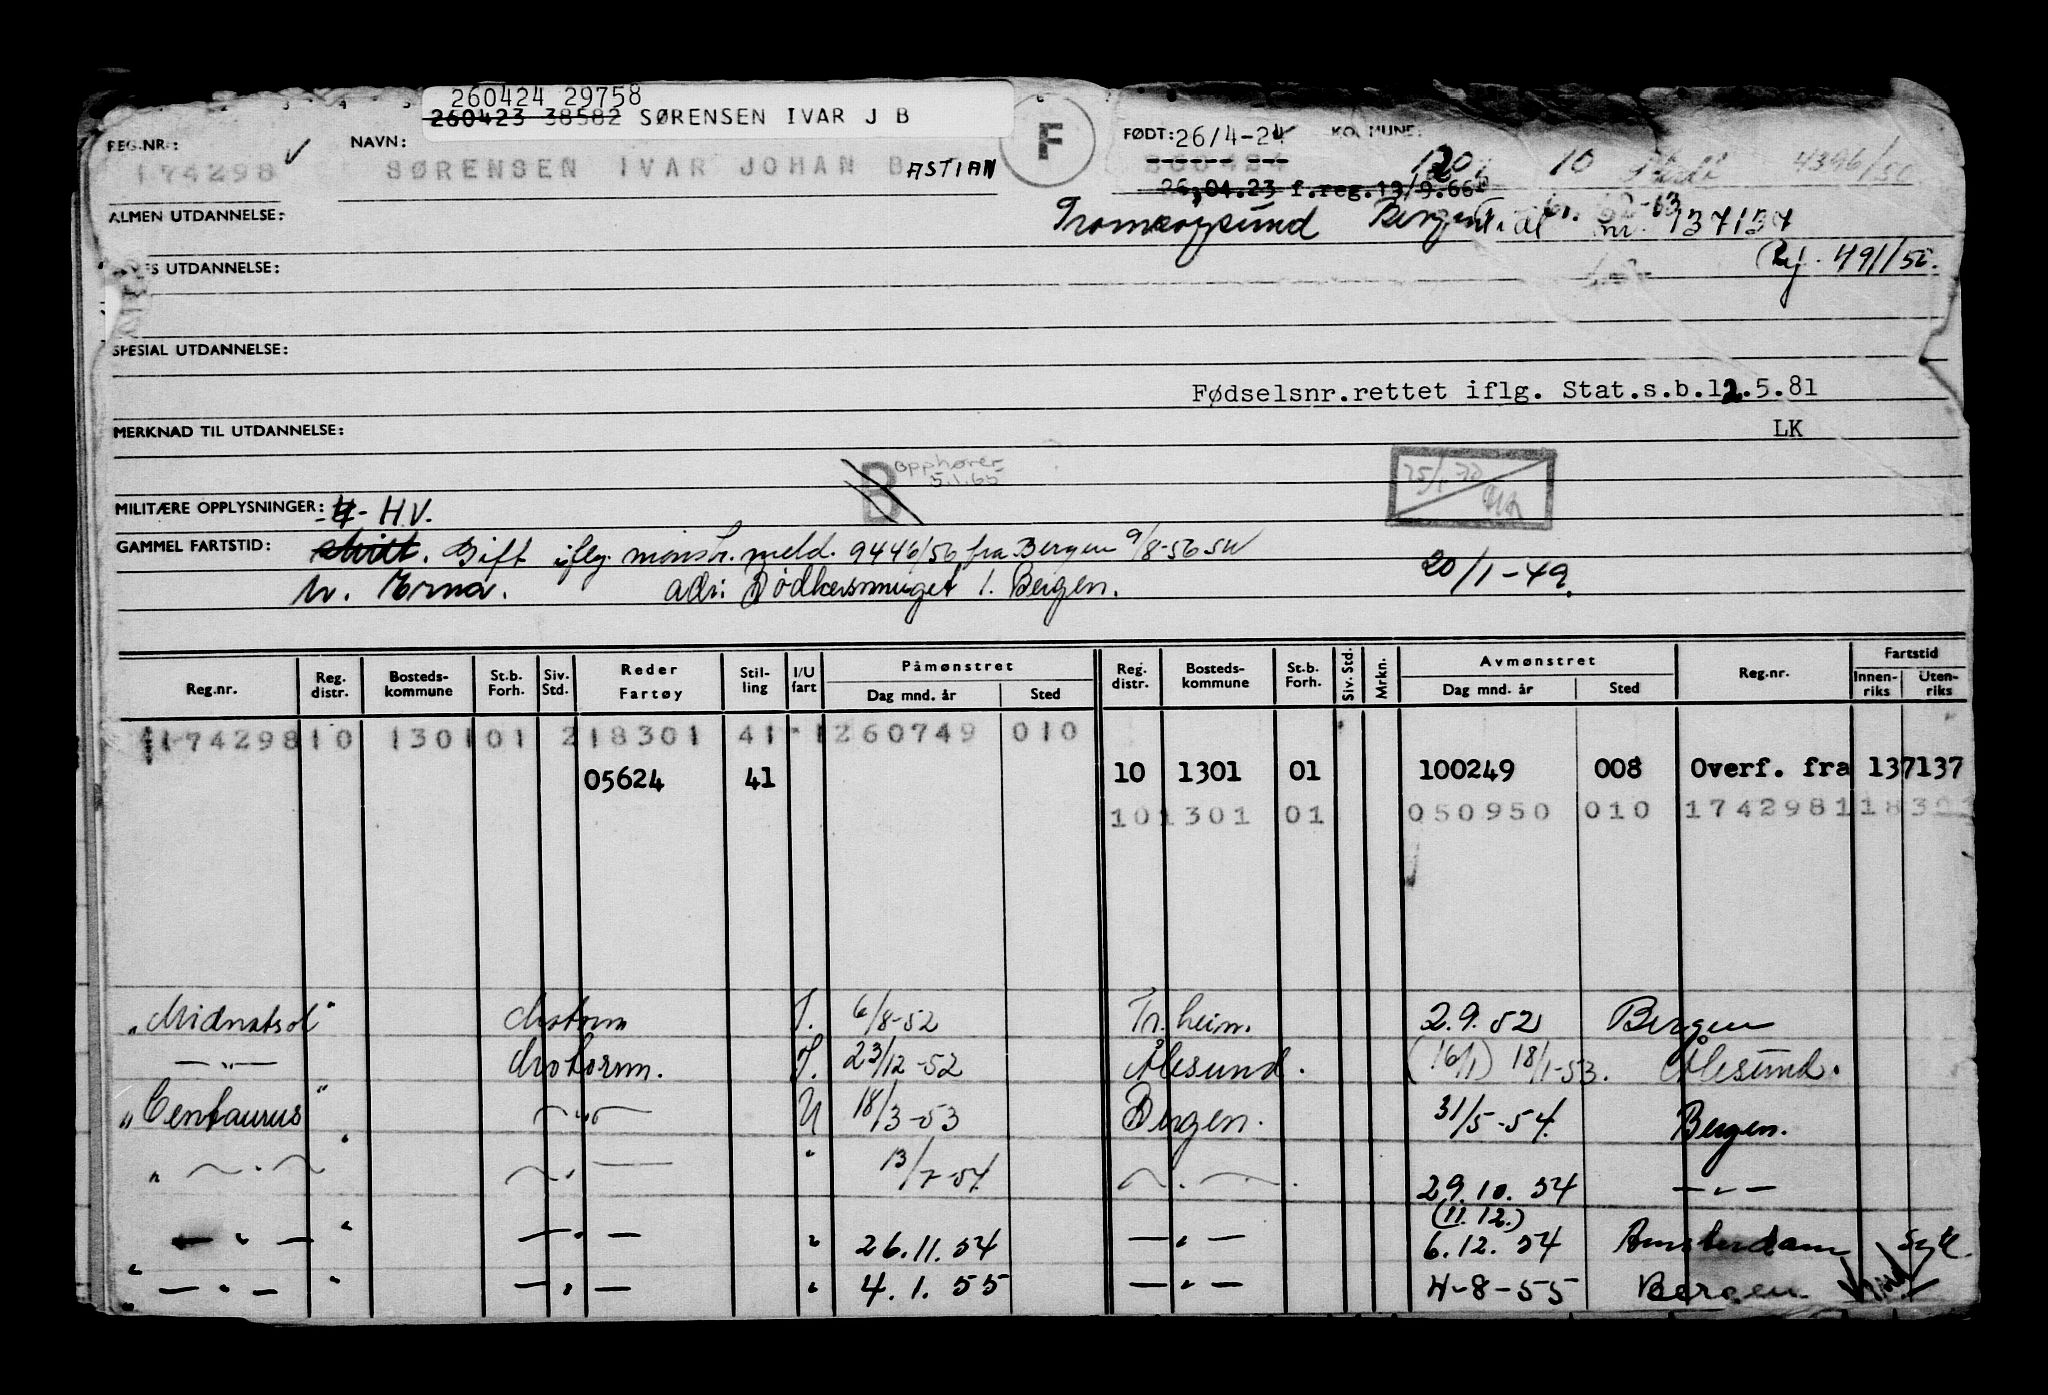 260424 29758
260423 38582 SØRENSEN IVAR J B
REG.NR.: 174298
NAVN: SØRENSEN IVAR JOHAN BASTIAN
F
FØDT: 26/4-24 KOMMUNE:
260424
26.04.23 f.reg.19/9.66
10 4396/56
ALMEN UTDANNELSE:
Tromsøysund Bergen
nr. 137137
Rej. 491/56.
UTDANNELSE:
SPESIAL UTDANNELSE:
Fødselsnr.rettet iflg. Stat.s.b.12.5.81
LK
MERKNAD TIL UTDANNELSE:
B opphører
5.1.65
MILITÆRE OPPLYSNINGER: H.V.
GAMMEL FARTSTID: Gift iflg. mønstr. meld. 9446/56 fra Bergen 9/8-56 SW
m. Erna. adr: Bødkersmuget 1. Bergen. 20/1-49.
Reg.nr. Reg. distr. Bosteds-kommune St.b. Forh. Siv. Std. Reder Fartøy Stil-ling I/U fart Påmønstret Dag mnd. år Sted Reg. distr. Bosteds-kommune St.b. Forh. Siv. Std. Mrkn. Avmønstret Dag mnd. år Sted Reg.nr. Fartstid Innen-riks Uten-riks
174298 10 1301 01 2 18301 41 1 260749 010
05624 41 10 1301 01 100249 008 Overf. fra 137137
10 1301 01 050950 010 174298 1 18301
"Midnatsol" Motorm I. 6/8-52 Tr.heim. 2.9.52 Bergen
— " — Motorm. I. 23/12-52 Ålesund. (16/1) 18/1-53. Ålesund.
"Centaurus" — " — U 18/3-53 Bergen. 31/5-54. Bergen.
" — " — " — " — " 13/7-54 — " — 29.10.54 — " —
— " — " — " — " 26.11.54 — " — (11.12.) 6.12.54 Amsterdam Syk
" — " — " — " — " 4.1.55 — " — 4-8-55 Bergen